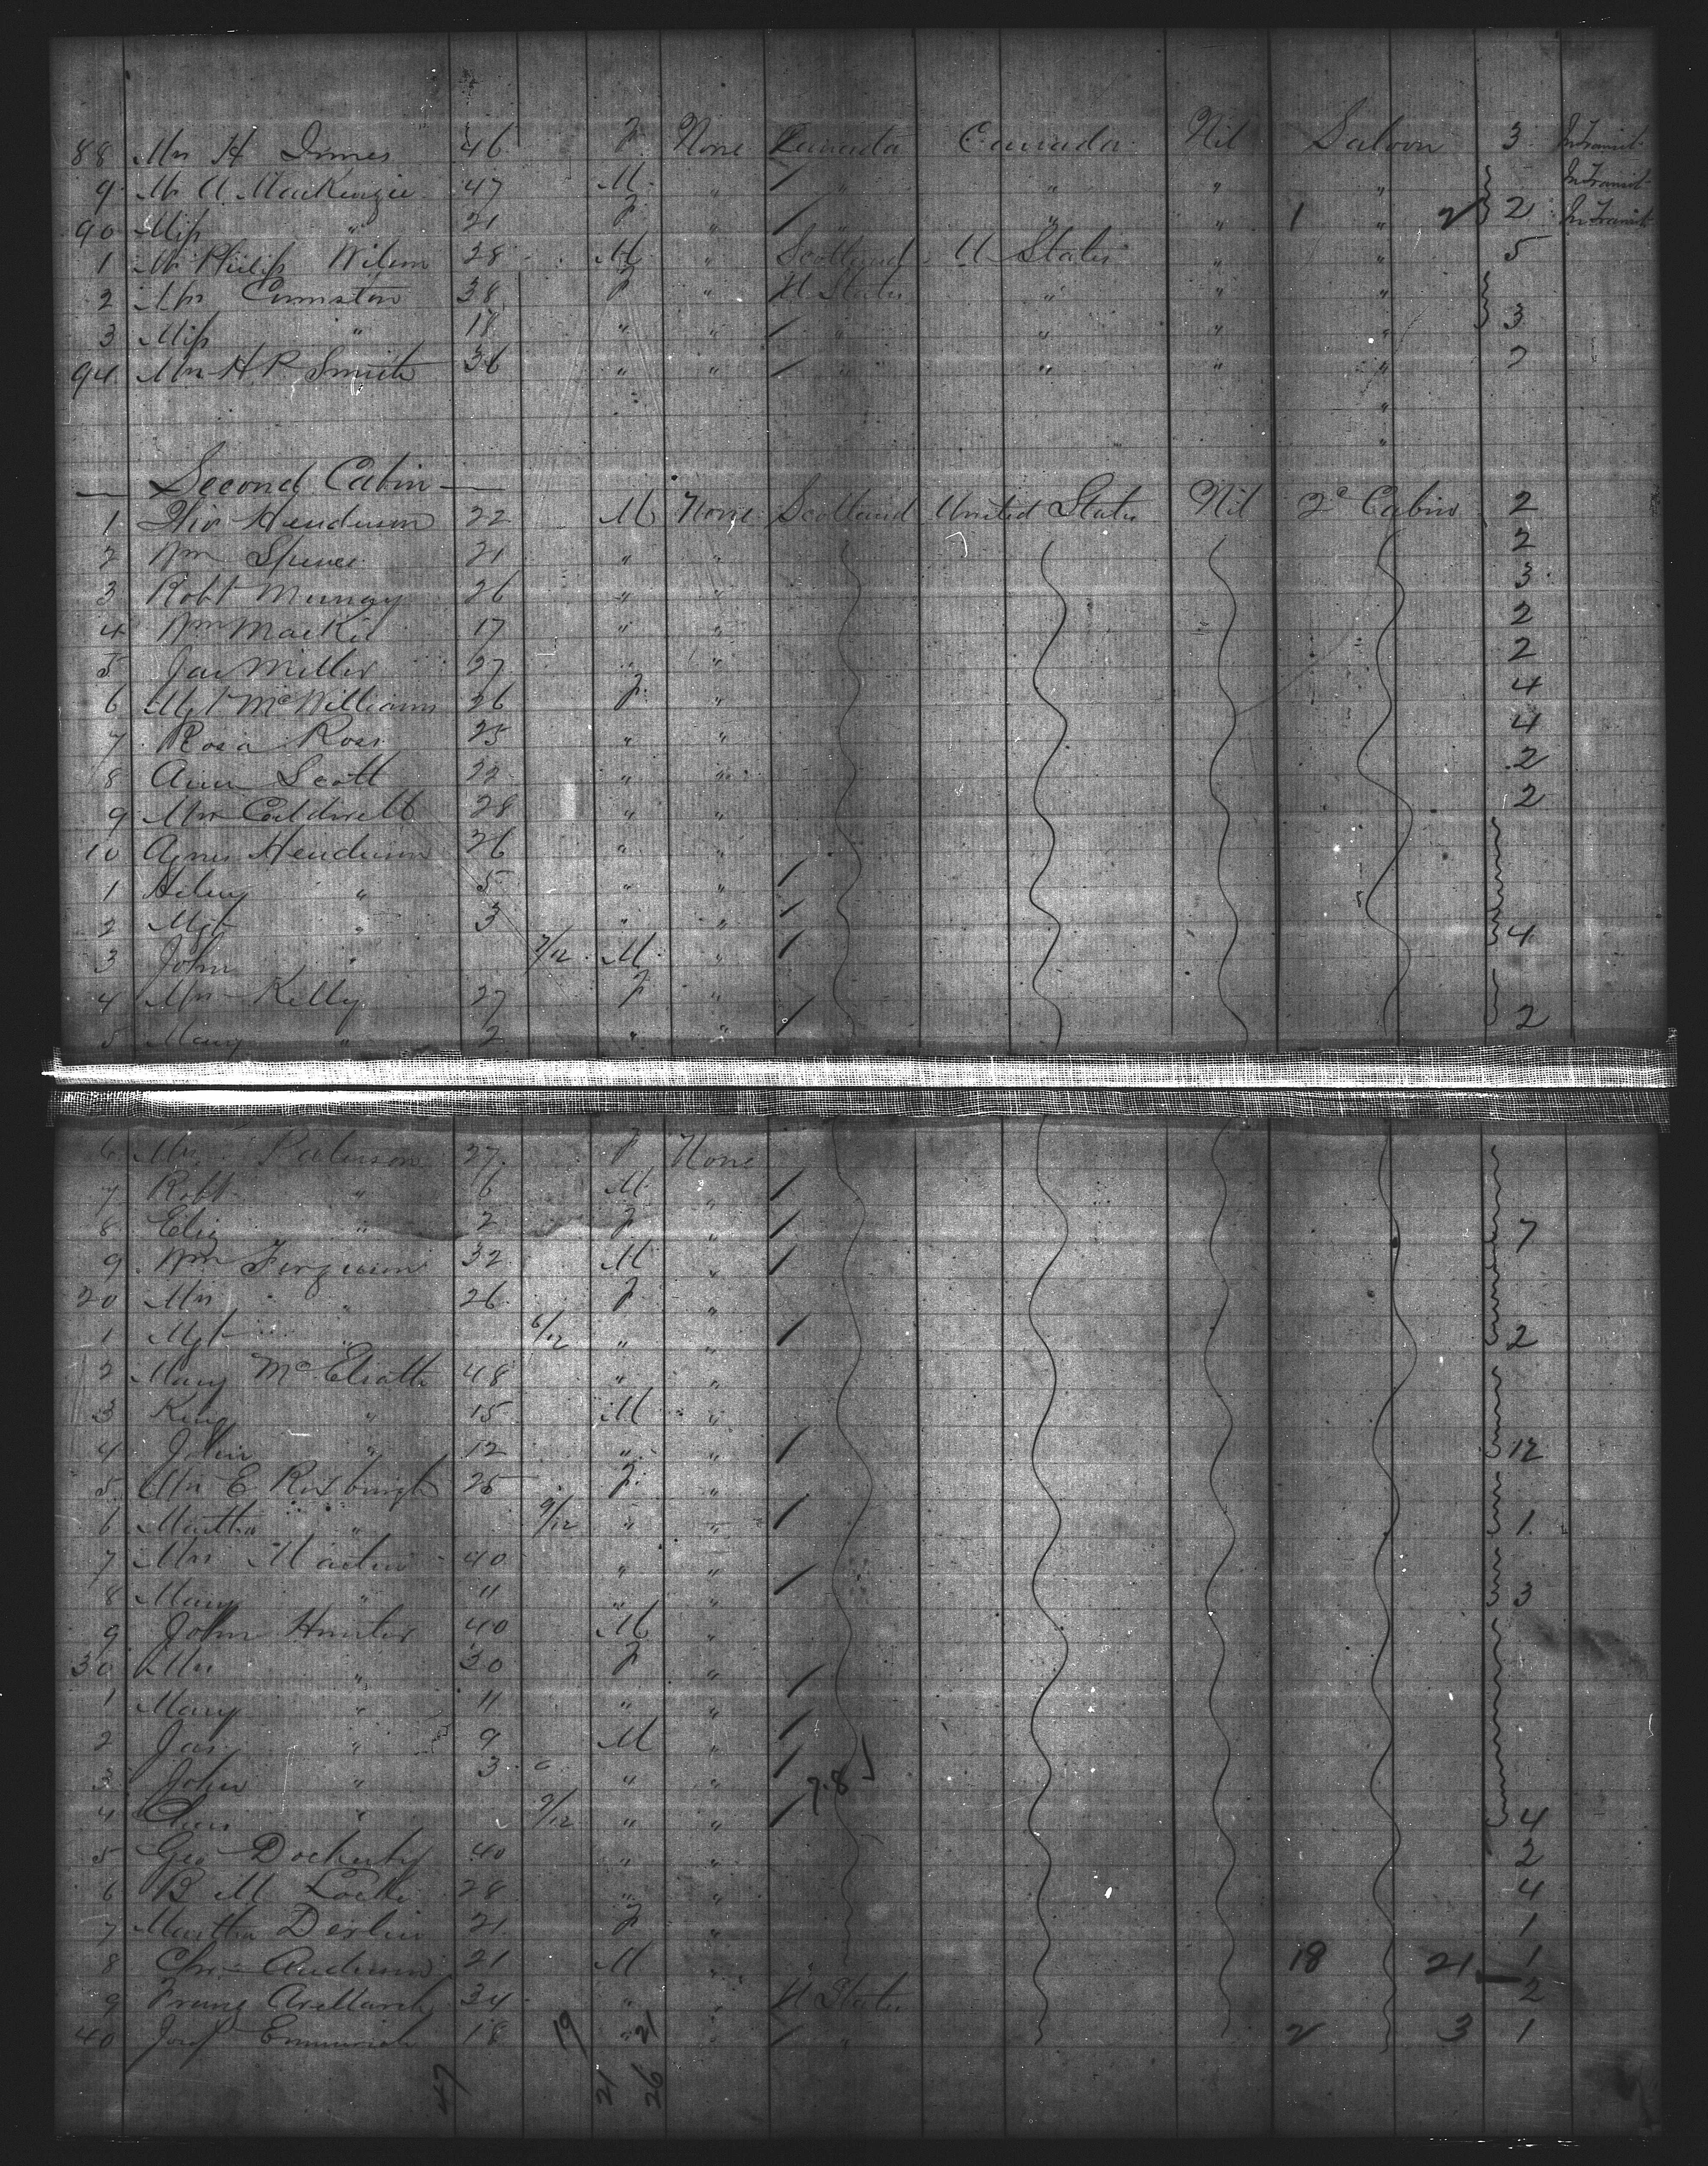 88 Mrs H Innes 46 F None Canada Canada Nil Saloon 3 In Transit
9 Mr A MacKenzie 47 M " / " " " " In Transit
90 Miss " 21 F " / " " " 1 " 2 2 In Transit
1 Mr Philip Wilson 28 M " Scotland U States " " 5
2 Mrs Cumston 38 F " U States " " "
3 Miss " 18 " " / " " " " 3
94 Mrs H P Smith 36 " " / " " " " 7
"
"
— Second Cabin —
1 Henderson 22 M None Scotland United States Nil 2d Cabin 2
2 Wm Spence 21 " " 2
3 Robt 26 " " 3
4 Wm MacKie 17 " " 2
5 Jas Miller 27 " " 2
6 Mgt McWilliams 26 F " 4
7 Rosa Ross 25 " " 4
8 Ann Scott 22 " " 2
9 Mrs Caldwell 28 " " 2
10 Agnes Henderson 26 " "
1 " 5 " " /
2 Mgt " 3 " " / 4
3 John " 7/12 M " /
4 Mrs Kelly 27 F "
5 Mary " 2 " " / 2
6 Mrs Paterson 27 F None
7 Robt " 6 M " /
8 Eliz " 2 F " / 7
9 Wm Ferguson 32 M " /
20 Mrs " 26 F "
1 Mgt " 6/12 " " / 2
2 Mary 48 " "
3 " 15 M "
4 John " 12 " " / 12
5 Mrs E Roxburgh 25 F "
6 Martha " 9/12 " " / 1
7 Mrs Martin 40 " "
8 Mary " 11 " " / 3
9 John Hunter 40 M "
30 Mrs " 30 F "
1 Mary " 11 " " /
2 Jas " 9 M " /
3 John " 3 " " / 78
4 " 9/12 " " / 4
5 Geo Docherty 40 " " 2
6 B M 28 " " 4
7 Martha Devlin 21 F " 1
8 Chr Anderson 21 M " 18 21 1
9 34 " " U States 2
40 18 19 " 21 " / " 2 3 1
47 21 26